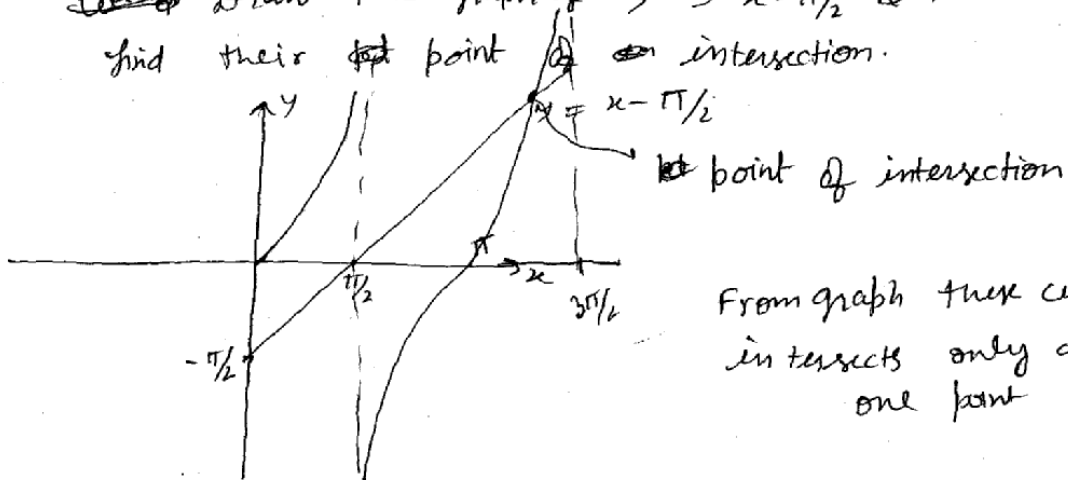 graph
x - π/2
find their point of intersection.
y
y = x - π/2
point of intersection
π
π/2
x
3π/2
- π/2
From graph these
intersects only
one point